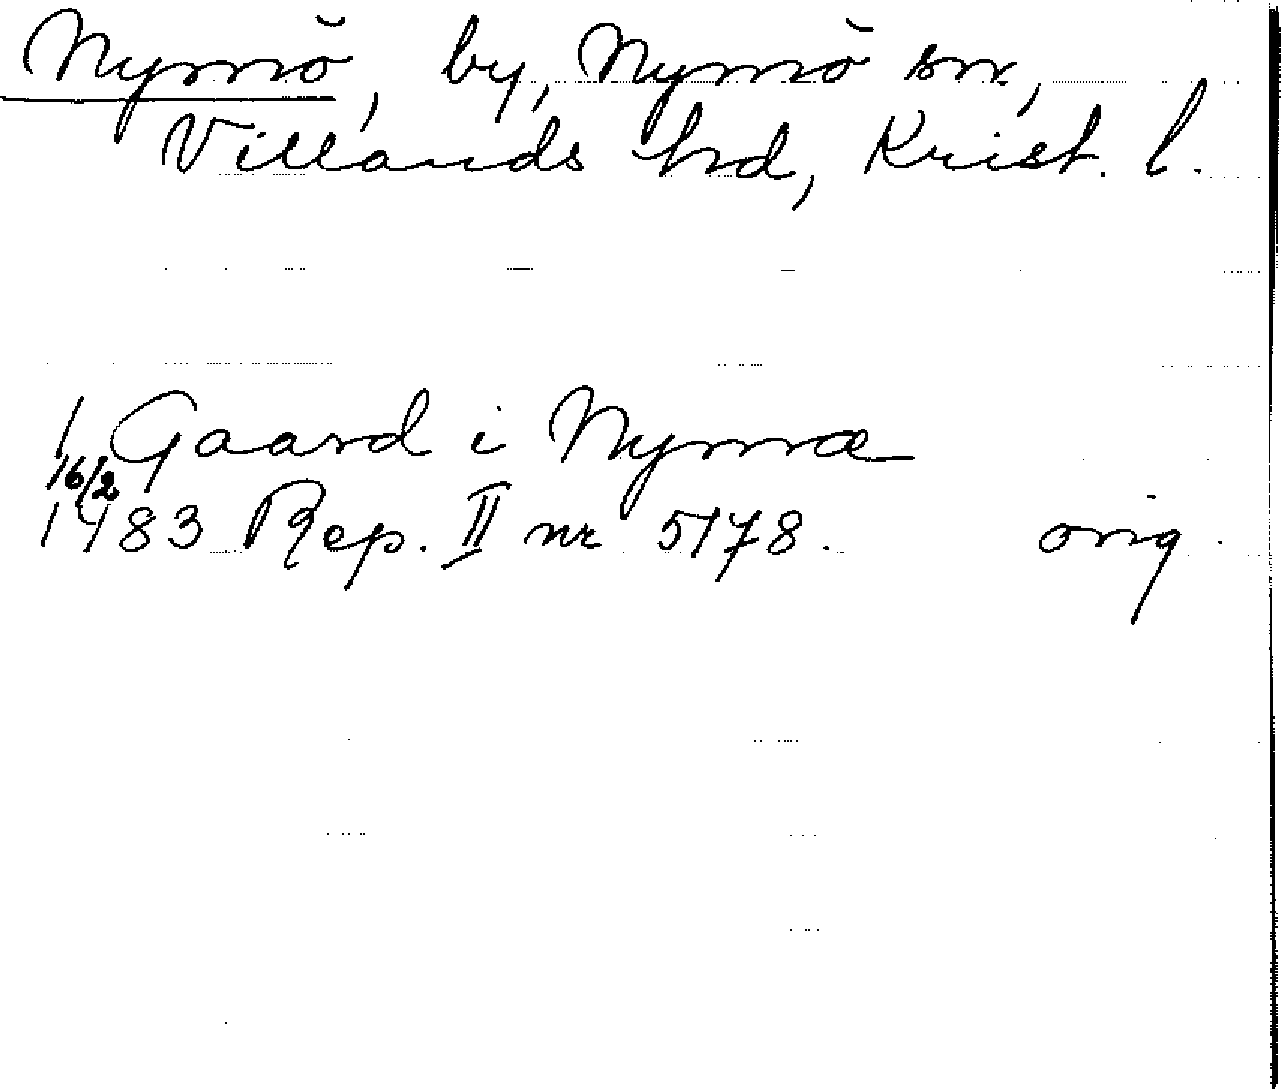 Nymö, by, Nymö sn,
Villands hd, Krist. l.
1 Gaard i Nymæ
16/2
1483 Rep. II nr 5178. orig.